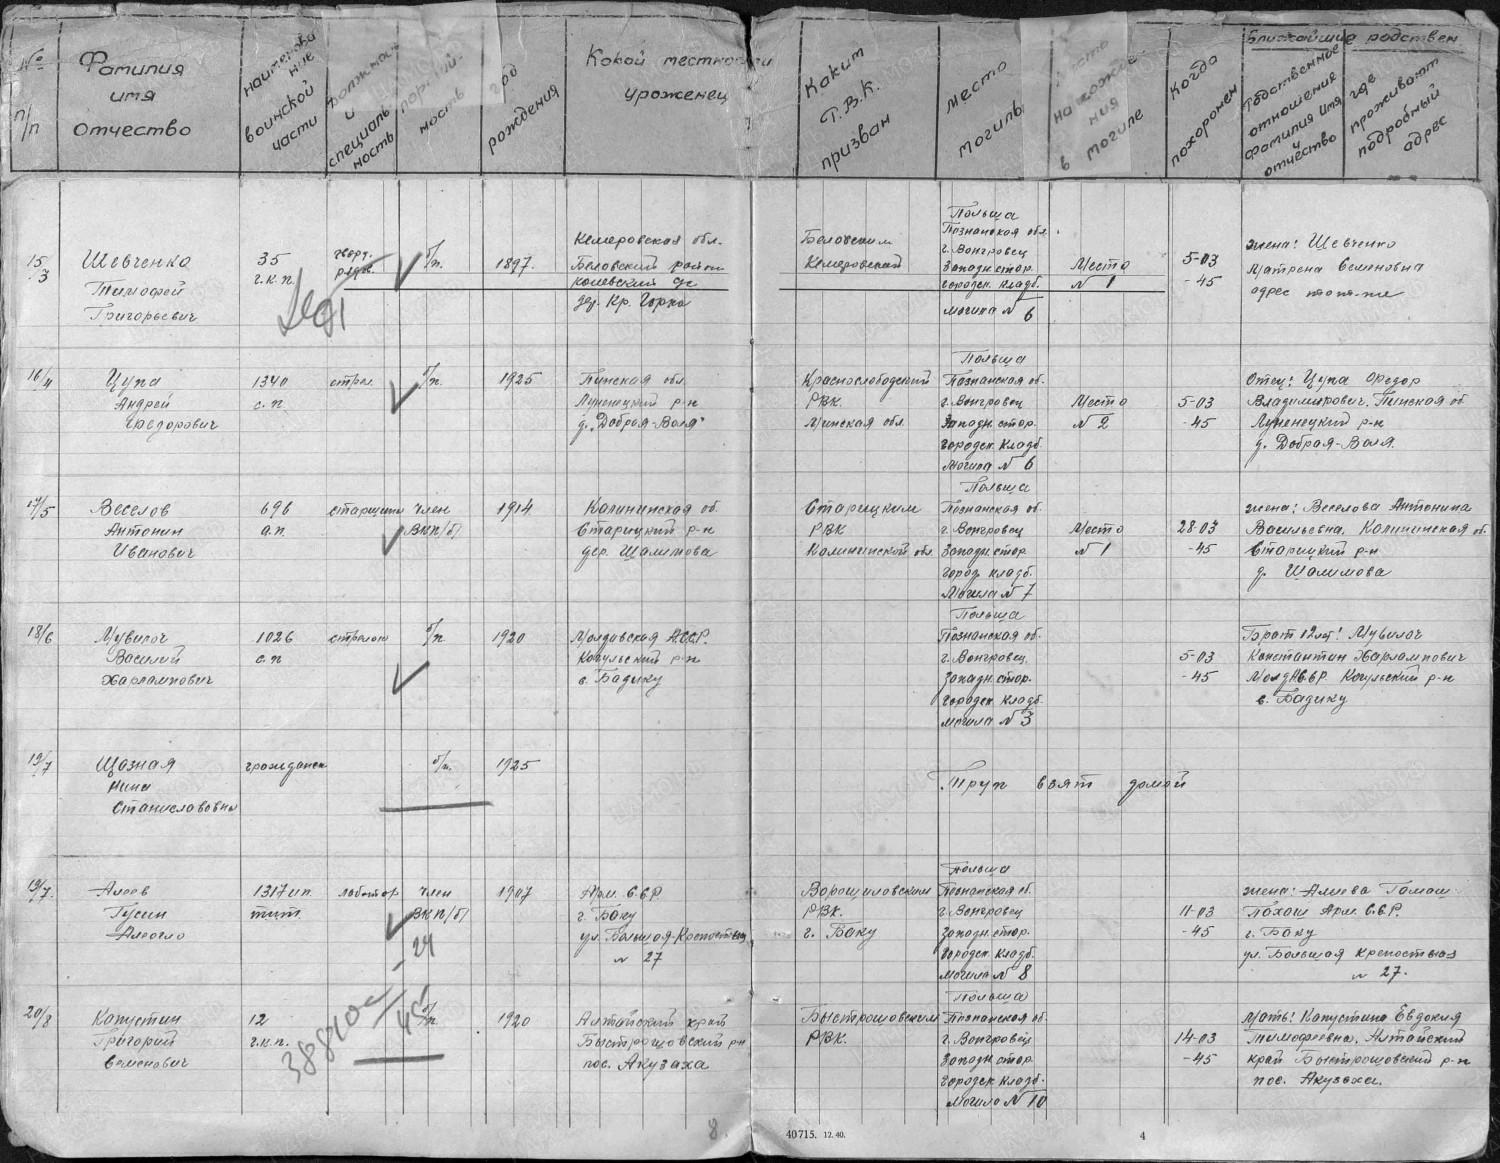 № п/п
Фамилия имя отчество
наименование воинской части
должность и специальность
партийность
год рождения
Какой местности уроженец
Каким Р.В.К. призван
место могилы
место нахождения в могиле
Когда похоронен
Ближайшие родствен.
Родственные отношения фамилия имя и отчество
где проживают подробный адрес
15/3
Шевченко
Тимофей
Григорьевич
35
г.к.п.
гварт.
ряд.
б/п.
1897.
Кемеровская обл.
Беловский район
дер. Кр. Горка
Беловским
Кемеровской
Польша
Познанская обл.
г. Вонгровец
Западн. стор.
городск. кладб.
могила № 6
Место
№ 1
5-03
-45
жена: Шевченко
Матрена Семеновна
адрес тот-же
16/4
Цупа
Андрей
Федорович
1340
с.п
стрел.
б/п.
1925
Пинская обл.
Луненецкий р-н
д. "Добрая-Воля"
Краснослободский
РВК.
Минская обл
Польша
Познанская об.
г. Вонгровец
Западн. стор.
городск. кладб.
Могила № 6
Место
№ 2
5-03
-45
Отец: Цупа Федор
Владимирович. Пинская об.
Луненецкий р-н
д. Добрая-Воля.
17/5
Веселов
Антонин
Иванович
696
а.п.
старшина
член
ВКП/б/
1914
Калининская об.
Старицкий р-н
дер. Шалимова
Старицким
РВК
Калининской обл.
Польша
Познанская об.
г. Вонгровец
Западн. стор
город. кладб.
Могила № 7
Место
№ 1
28-03
-45
жена: Веселова Антонина
Васильевна, Калининская об.
Старицкий р-н
д. Шалимова
18/6
Мувилоч
Василий
Харлампович
1026
с.п
стрелок
б/п
1920
Молдавская А.С.С.Р.
Кагульский р-н
с. Бадику
Польша
Познанская об.
г. Вонгровец.
Западн. стор.
городск. кладб.
могила № 3
5-03
-45
Брат 12 лет! Мувилоч
Константин Харлампович
Молд А.С.С.Р. Кагульский р-н
с. Бадику
19/7
Щозная
Нина
Станиславовна
гражданск
б/п.
1925
Труп взят домой
19/7.
Алеев
Гусин
Алеогло
1317 ип.
член
ВКП/б/
- 24
1907
Арм. С.С.Р.
г. Баку
ул. Большая-Крепостная
№ 27
Ворошиловским
РВК.
г. Баку
Польша
Познанская об.
г. Вонгровец
Западн. стор.
городск. кладб.
могила № 8
11-03
-45
жена: Алиева Гамаш
Пахаш Арм. С.С.Р.
г. Баку
ул. Большая крепостная
№ 27.
20/8
Капустин
Григорий
Семенович
12
г.к.п.
45
б/п
1920
Алтайский край
Быстрощовский р-н
пос. Акузаха
Быстрощовским
РВК.
Польша
Познанская об.
г. Вонгровец
Западн. стор.
городск. кладб.
Могила № 10
14-03
-45
мать: Капустина Евдокия
Тимофеевна. Алтайский
край Быстрощовский р-н
пос. Акузаха.
8
40715. 12. 40.
4